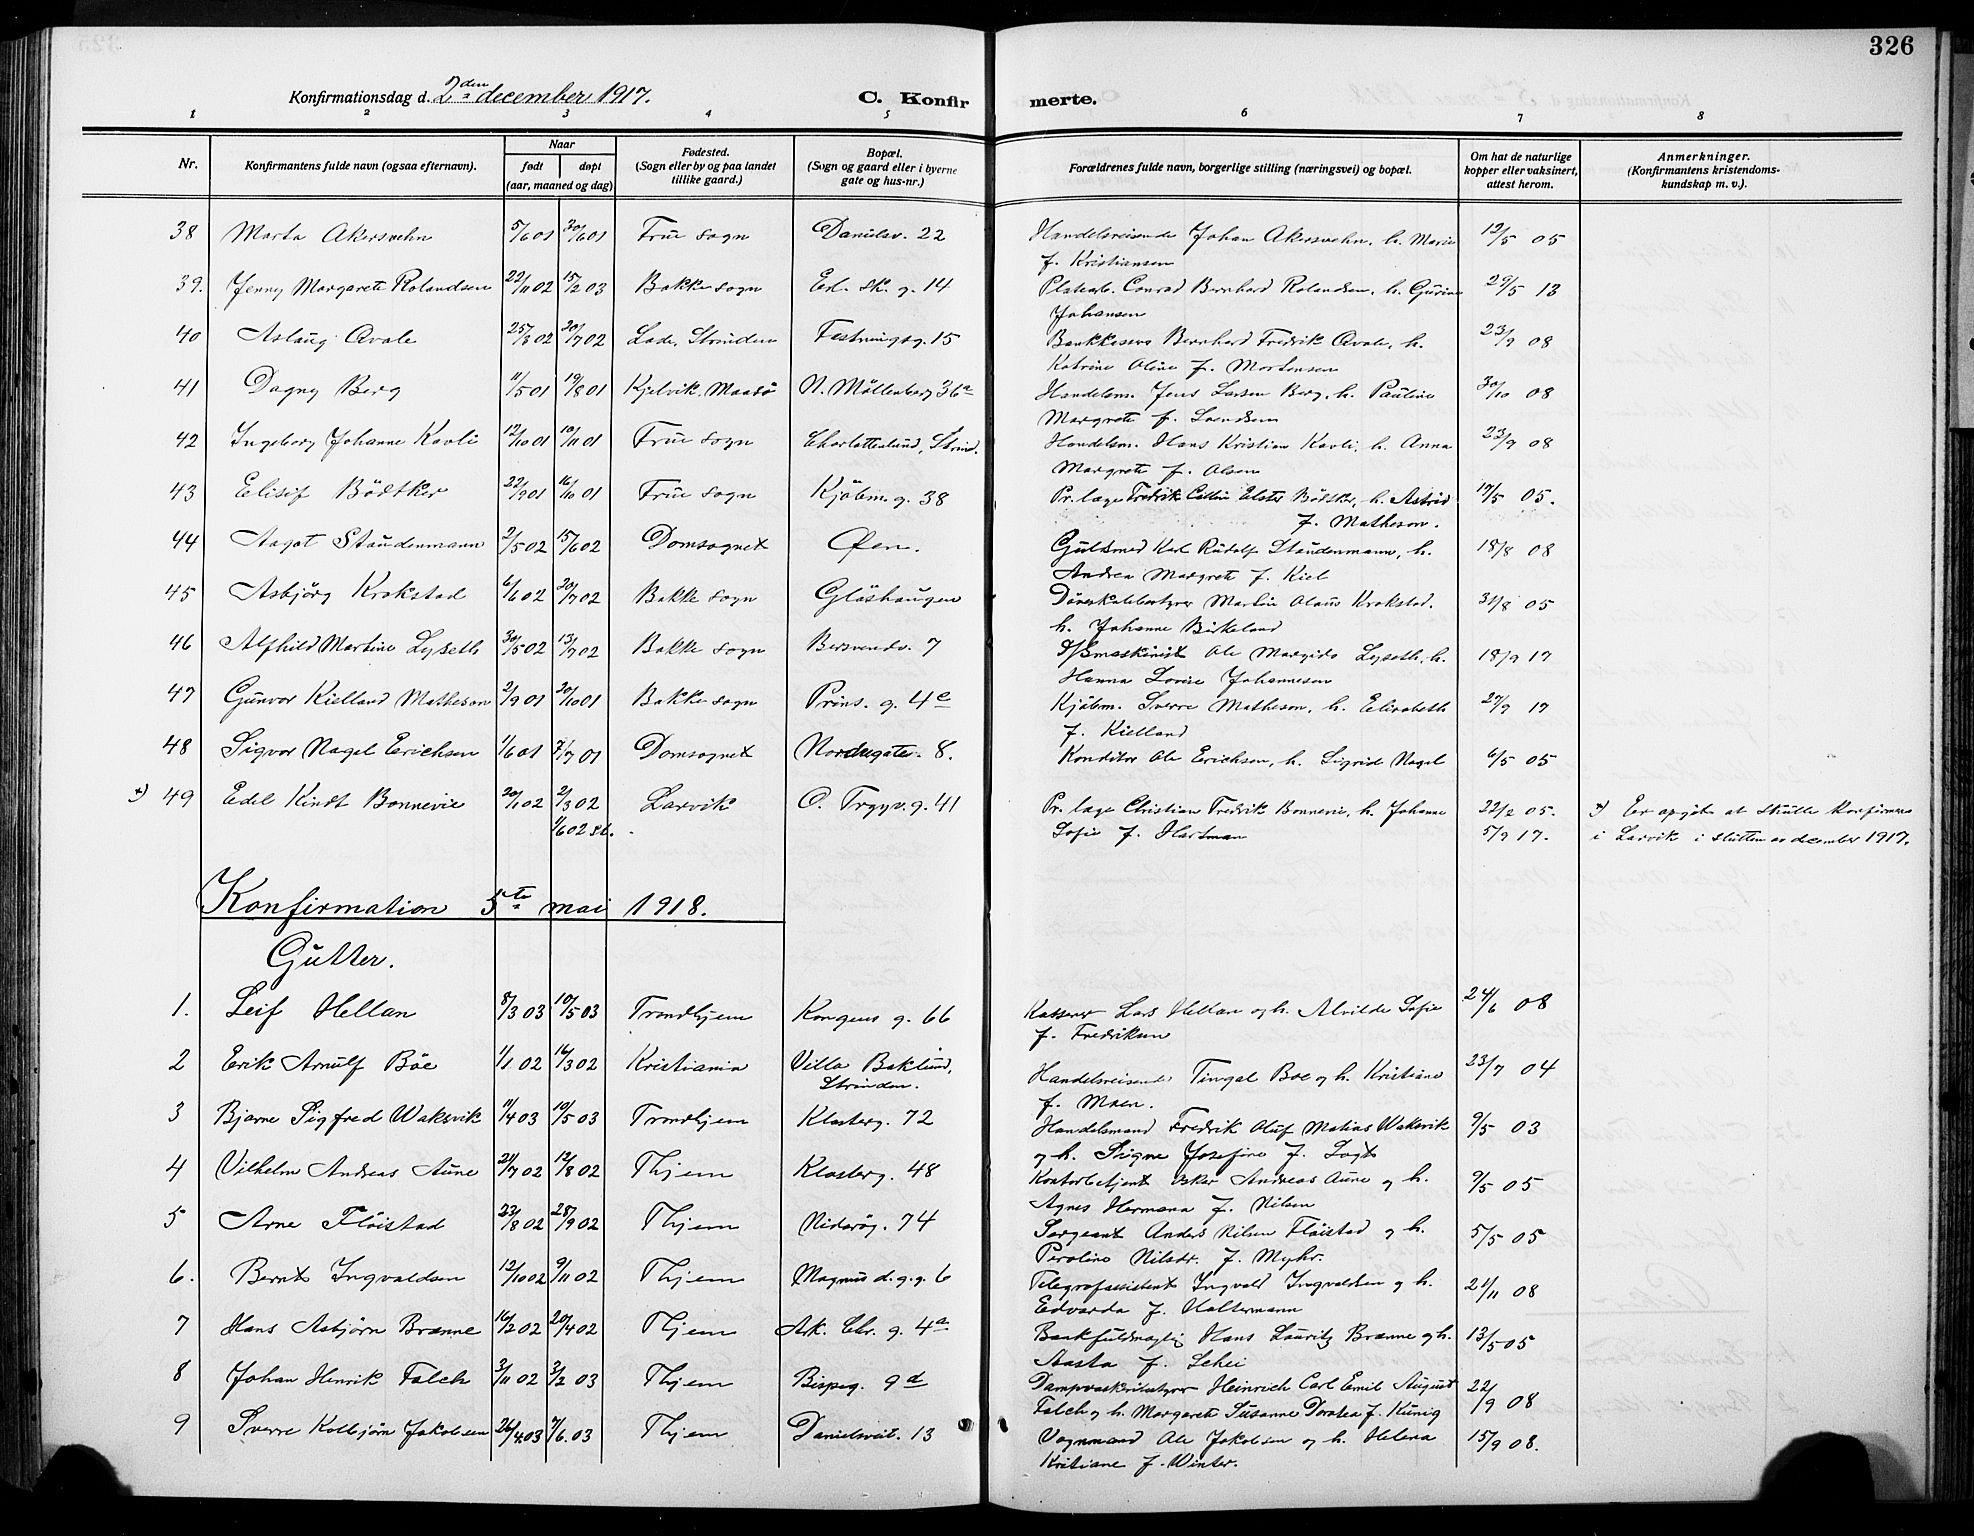 326
Konfirmationsdag d. 2den december 1917.
C. Konfirmerte.
1 2 3 4 5 6 7 8
Nr.
Konfirmantens fulde navn (ogsaa efternavn).
Naar
født døpt
(aar, maaned og dag)
Fødested.
(Sogn eller by og paa landet
tillike gaard.)
Bopæl.
(Sogn og gaard eller i byerne
gate og hus-nr.)
Forældrenes fulde navn, borgerlige stilling (næringsvei) og bopæl.
Om hat de naturlige
kopper eller vaksinert,
attest herom.
Anmerkninger.
(Konfirmantens kristendoms-
kundskap m. v.).
38 Marta Akersvehn 5/6 01 30/6 01 Frue sogn Danielsv. 22 Handelsreisende Johan Akersvehn, h. Marie 12/5 05
f. Kristiansen
39. Jenny Margarete Rolandsen 22/11 02 15/2 03 Bakke sogn Ed. sk. g. 14 Conrad Bernhard Rolandsen, h. Gurine 29/5 13
Johansen
40 Aslaug Qvale 25/3 02 20/7 02 Lade, Strinden Fæstningsg. 15 Bernhard Fredrik Qvale, h. 23/9 08
Katrine Oline f. Mortensen
41 Dagny Berg 11/5 01 19/8 01 Kjelvik, Maasö N. Möllenberg 36a Handelsm. Jens Larsen Berg, h. Pauline 30/10 08
Margrete f. Svendsen
42 Ingeborg Johanne Kavli 12/10 01 10/11 01 Frue sogn Charlottenlund, Strind. Handelsm. Hans Kristian Kavli, h. Anna 23/9 08
Margrete f. Olsen
43 Elisif Bödtker 22/9 01 16/10 01 Frue sogn Kjöbm. g. 38 Pr. læge Fredrik Collin Elster Bödtker, h. Astrid 17/5 05.
f. Matheson.
44 Aagot Staudenmann 2/5 02 15/6 02 Domsognet Øen. Gulsmed Karl Rudolf Staudenmann, h. 18/8 08
Andrea Margrete f. Kiel
45 Asbjörg Krokstad 6/6 02 20/7 02 Bakke sogn Glöshaugen Martin Olaus Krokstad. 31/8 05
h. Johanne Birkeland
46 Alfhild Martine Lyseth 30/5 02 13/7 02 Bakke sogn Bersvendv. 7 D/Smaskinist Ole Margido Lyseth, h. 18/9 17
Hanna Lovise Johannesen
47 Gunvor Kielland Matheson 2/9 01 20/10 01 Bakke sogn Prins. g. 4c Kjöbm. Sverre Matheson, h. Elisabeth 27/9 17
f. Kielland
48 Sigvor Nagel Erichsen 1/6 01 7/7 01 Domsognet Nordregate. 8. Konditor Ole Erichsen, h. Sigrid Nagel 6/5 05
*) 49 Edel Kindt Bonnevie 20/1 02 2/3 02 Larvik O. Trygv. g. 41 Pr. læge Christian Fredrik Bonnevie, h. Johanne 22/2 05. *) Er opgit at skulle konfirmeres
1/6 02 st. Sofie f. Hartman 5/9 17. i Larvik i slutten av december 1917.
Konfirmation 5te mai 1918.
Gutter.
1. Leif Hellan 8/3 03 10/5 03 Trondhjem Kongens g. 66 Kasserer Lars Hellan og h. Alvilde Sofie 24/6 08
f. Fredriksen
2 Erik Arnulf Böe 1/1 02 16/3 02 Kristiania Villa Baklund, Handelsreisende Tingal Boe og h. Kristiane 23/7 04
Strinden. f. Moen.
3 Bjarne Sigfred Waksvik 11/4 03 10/5 03 Trondhjem Klosterg. 72 Handelsmand Fredrik Oluf Matias Waksvik 9/5 03
og h. Signe Josefine f. Sogt
4 Vilhelm Andreas Aune 21/7 02 12/8 02 Thjem Klosterg. 48 Kontorbetjent Oskar Andreas Aune og h. 9/5 05
Agnes Hermana f. Nilsen
5 Arne Flöistad 23/8 02 28/9 02 Thjem Nidarög. 74 Sergeant Anders Nilsen Flöistad og h. 5/5 05
Peroline Nilsdr. f. Myhr.
6. Bernt Ingvaldsen 12/10 02 9/11 02 Thjem Magnus d. g. g. 6 Telegrafassistent Ingvald Ingvaldsen og h. 21/11 08
Edvarda f. Haltermann
7 Hans Asbjörn Brænne 16/2 02 20/4 02 Thjem Ak. Chr. g. 4a Bankfuldmægtig Hans Lauritz Brænne og h. 13/5 05
Aasta f. Schei
8 Johan Henrik Falch 3/11 02 3/2 03 Thjem Bispeg. 9d Heinrich Carl Emil August 22/9 08
Falch og h. Margarete Susanne Dorotea f. Kunig
9 Sverre Kolbjörn Jakobsen 26/4 03 7/6. 03 Thjem Danielsveit. 13 Vognmand Ole Jakobsen og h. Helena 15/9 08.
Kristiane f. Winter.